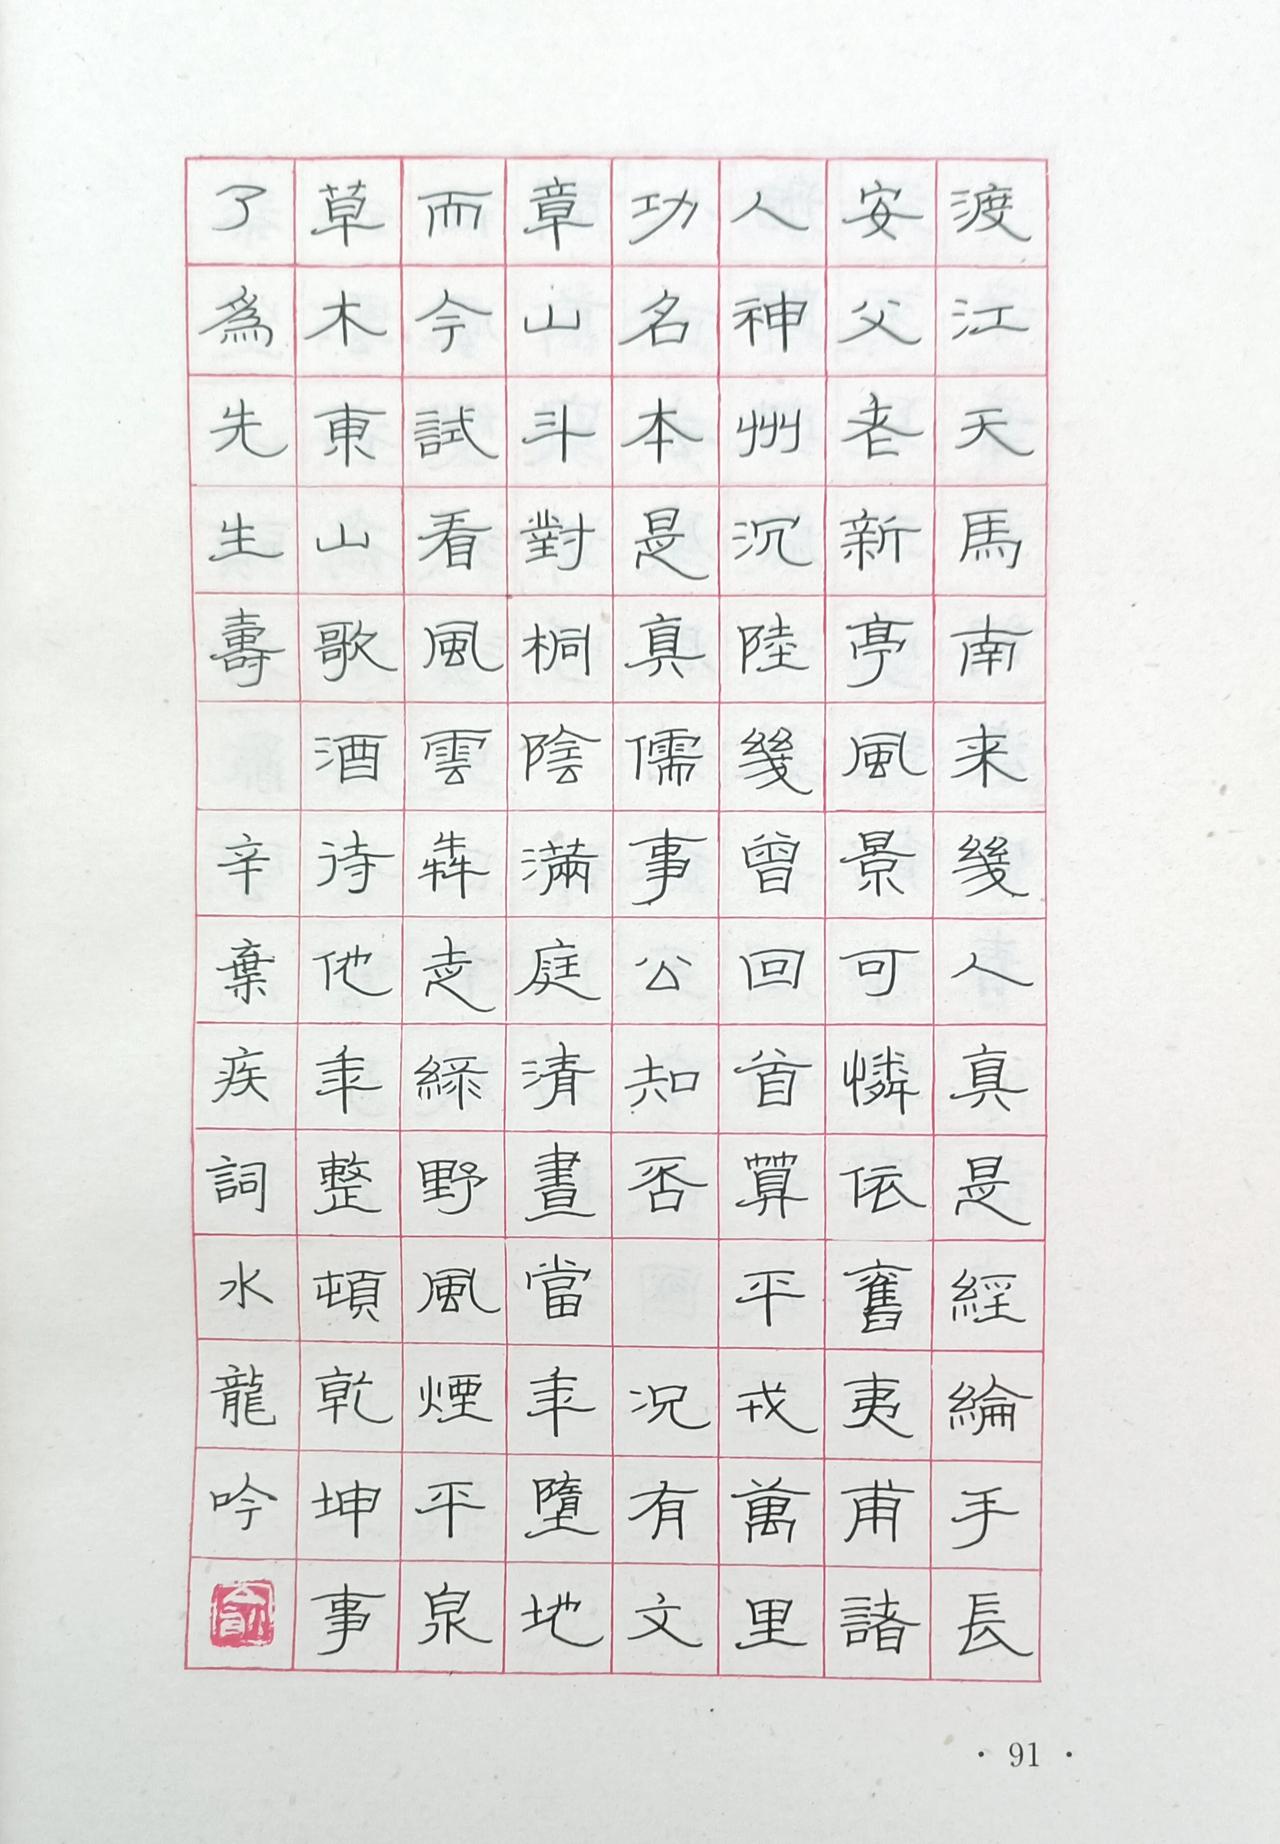 渡江天馬南来幾人真是經綸手長
安父老新亭風景可憐依舊夷甫諸
人神州沉陸幾曾回首算平戎萬里
功名本是真儒事公知否 况有文
章山斗對桐陰滿庭清晝當年墮地
而今試看風雲犇走綠野風煙平泉
草木東山歌酒待他年整頓乾坤事
了爲先生壽 辛棄疾詞水龍吟
· 91 ·